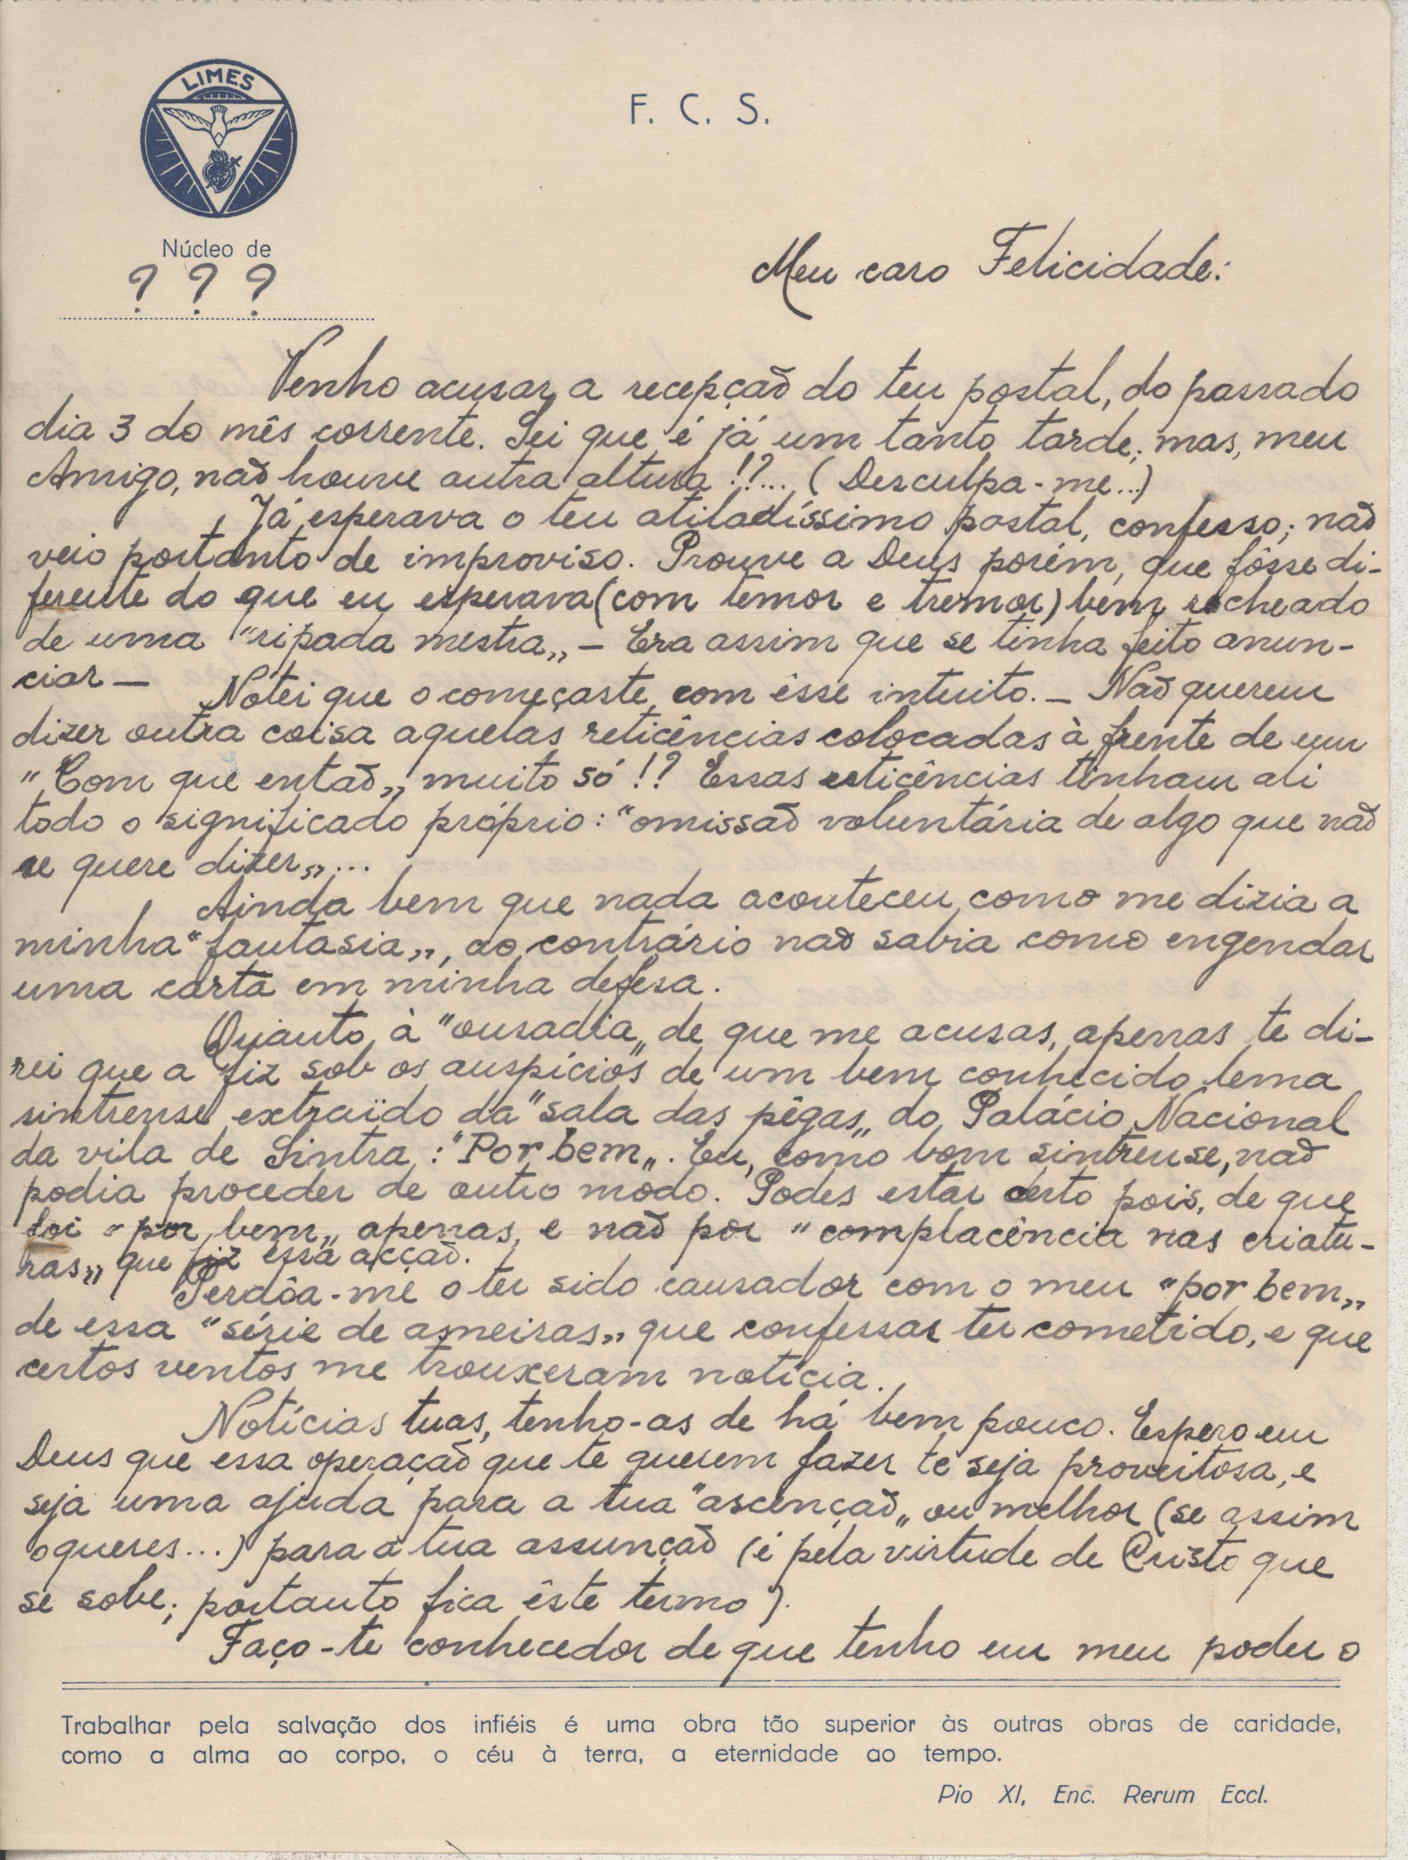 LIMES
F. C. S.
Núcleo de
? ? ?
Meu caro Felicidade:
Venho acusar a recepção do teu postal, do passado
dia 3 do mês corrente. Sei que é já um tanto tarde; mas, meu
Amigo, não houve outra altura!?... (Desculpa-me...)
Já esperava o teu atiladíssimo postal, confesso; não
veio portanto de improviso. Prouve a Deus porém, que fôsse di-
ferente do que eu esperava (com temor e tremor) bem recheado
de uma "ripada mestra„ – Era assim que se tinha feito anun-
ciar –
Notei que o começaste com êsse intuito. – Não querem
dizer outra coisa aquelas reticências colocadas à frente de um
"Com que então„, muito só!? Essas reticências tinham ali
todo o significado próprio: "omissão voluntária de algo que não
se quere dizer„...
Ainda bem que nada aconteceu como me dizia a
minha "fantasia„, ao contrário não sabia como engendar
uma carta em minha defesa.
Quanto à "ousadia„ de que me acusas, apenas te di-
rei que a fiz sob os auspícios de um bem conhecido lema
sintrense extraído da "sala das pêgas„ do Palácio Nacional
da vila de Sintra: "Por bem„. Eu, como bom sintrense, não
podia proceder de outro modo. Podes estar certo pois, de que
foi "por bem„ apenas, e não por "complacência nas criatu-
ras„ que fiz essa acção.
Perdôa-me o ter sido causador com o meu "por bem„
de essa "série de asneiras„ que confessas ter cometido, e que
certos ventos me trouxeram notícia.
Notícias tuas, tenho-as de há bem pouco. Espero em
Deus que essa operação que te querem fazer te seja proveitosa, e
seja uma ajuda para a tua "ascenção„ ou melhor (se assim
o queres...) para a tua assunção (é pela virtude de Cristo que
se sobe; portanto fica êste termo).
Faço-te conhecedor de que tenho em meu poder o
Trabalhar pela salvação dos infiéis é uma obra tão superior às outras obras de caridade,
como a alma ao corpo, o céu à terra, a eternidade ao tempo.
Pio XI, Enc. Rerum Eccl.